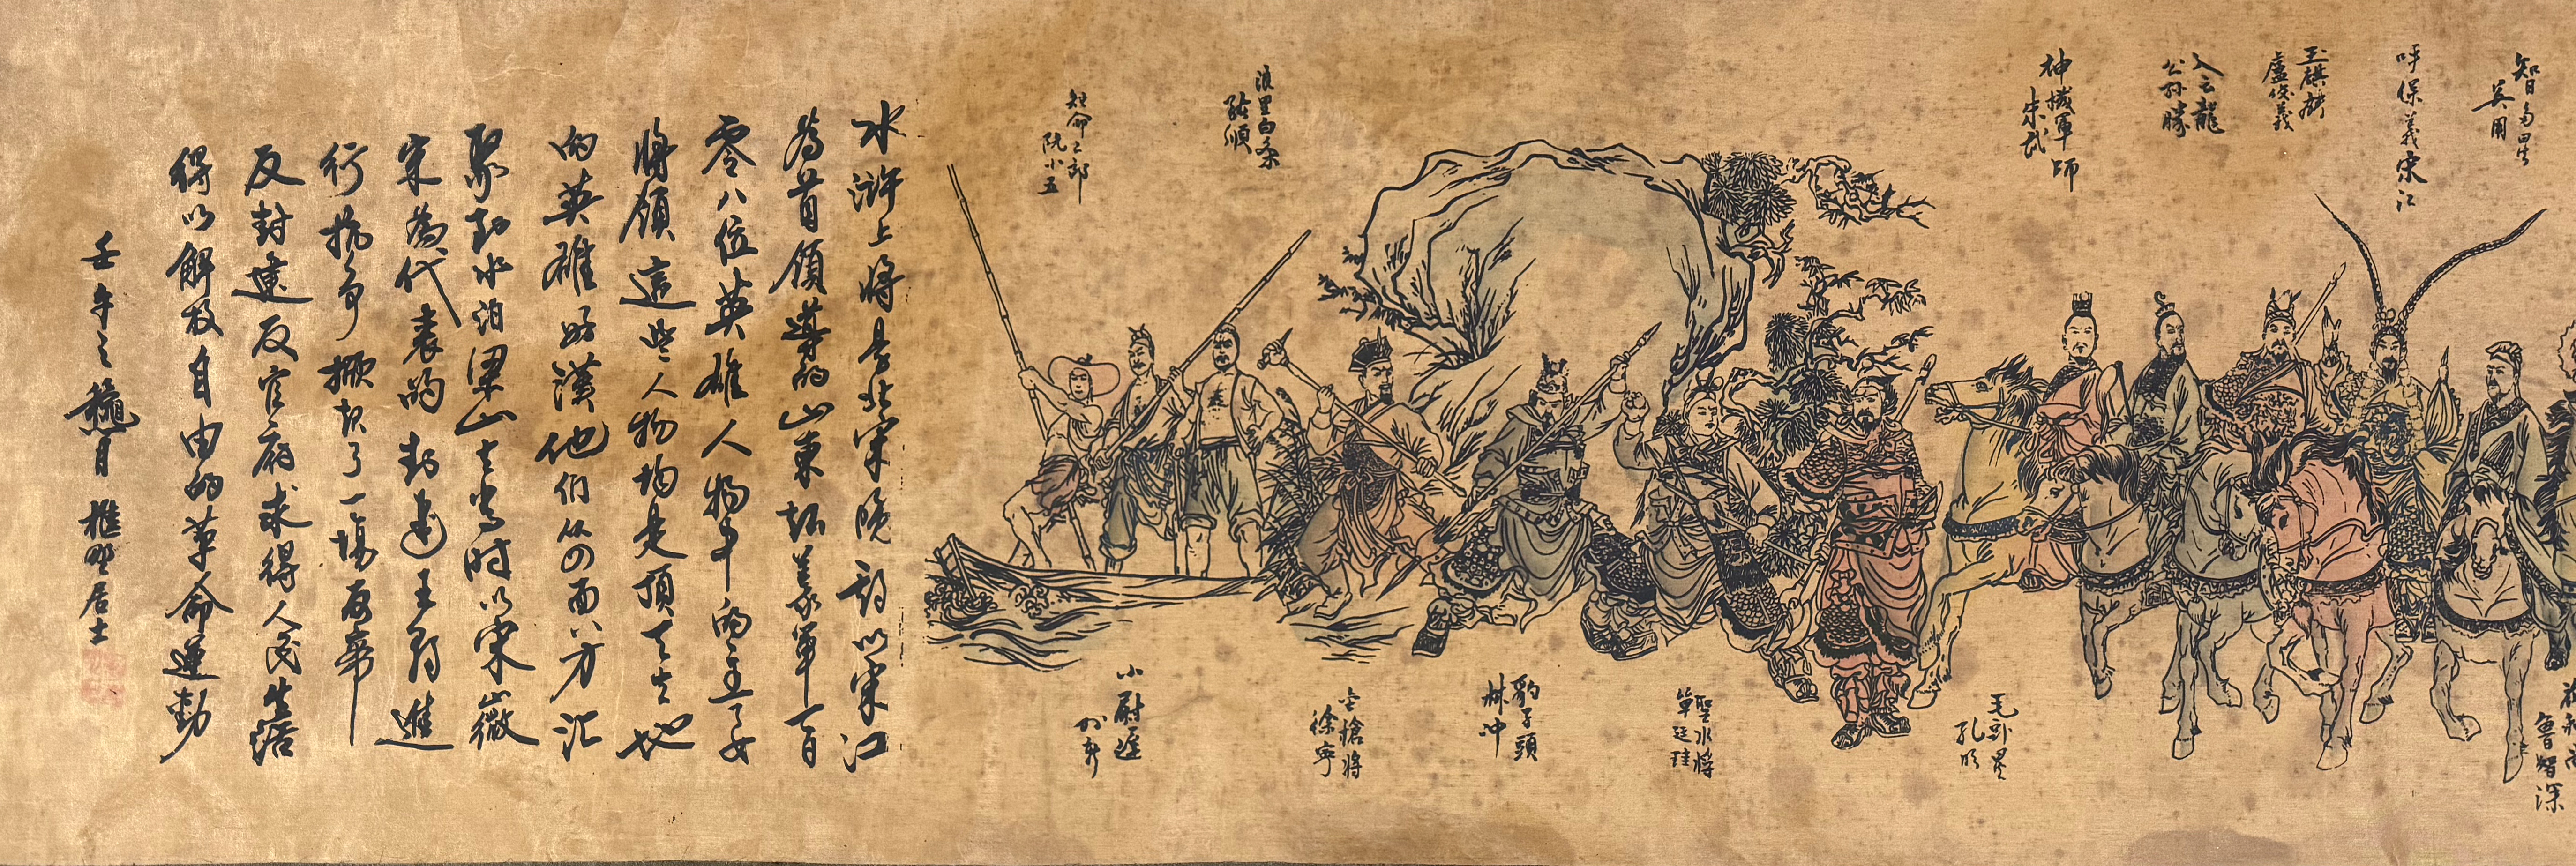 智多星
吳用
呼保義宋江
玉麒麟
盧俊義
入云龍
公孫勝
神機軍師
朱武
浪里白条
張順
短命二郎
阮小五
魯智深
毛頭星
孔明
聖水將
單廷珪
豹子頭
林冲
金槍將
徐寧
小尉遲
孫新
水滸上將是北宋晚期以宋江
為首領導的山東起義軍一百
零八位英雄人物中的主要
將領這些人物均是頂天立地
的英雄好漢他們從四面八方汇
聚到水泊梁山當时以宋徽
宋為代表的封建王朝進
行抗爭掀起了一場反帝
反封建反官府求得人民生活
得以解放自由的革命運動
壬午之穐月 樵野居士